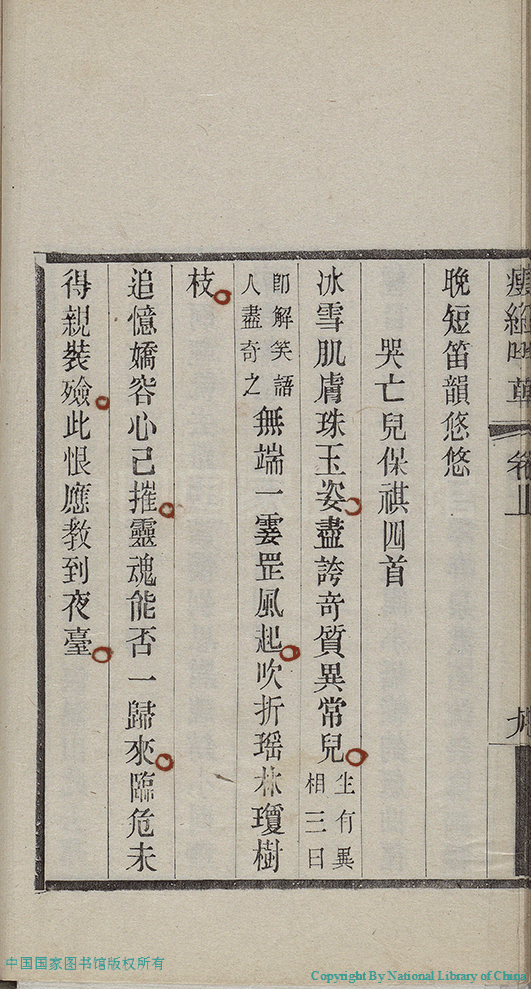 卷上
九
晚短笛韻悠悠
哭亡兒保祺四首
冰雪肌膚珠玉姿盡誇奇質異常兒
生有異
相三日
卽解笑語
人盡奇之
無端一霎罡風起吹折瑤林瓊樹
枝
追憶嬌容心已摧靈魂能否一歸來臨危未
得親裝殮此恨應教到夜臺
中国国家图书馆版权所有
Copyright By National Library of China